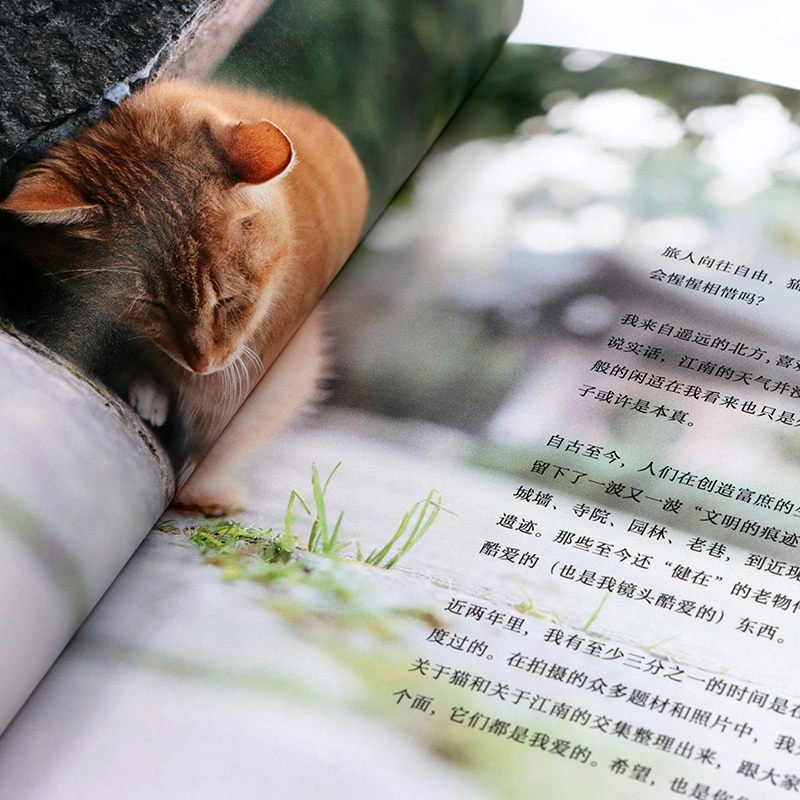 旅人向往自由，猫
会惺惺相惜吗？
我来自遥远的北方，喜欢
说实话，江南的天气并没
般的闲适在我看来也只是
子或许是本真。
自古至今，人们在创造富庶的
留下了一波又一波“文明的痕迹
城墙、寺院、园林、老巷，到近现
遗迹。那些至今还“健在”的老物件
酷爱的（也是我镜头酷爱的）东西。
近两年里，我有至少三分之一的时间是在
度过的。在拍摄的众多题材和照片中，我
关于猫和关于江南的交集整理出来，跟大家
个面，它们都是我爱的。希望，也是你